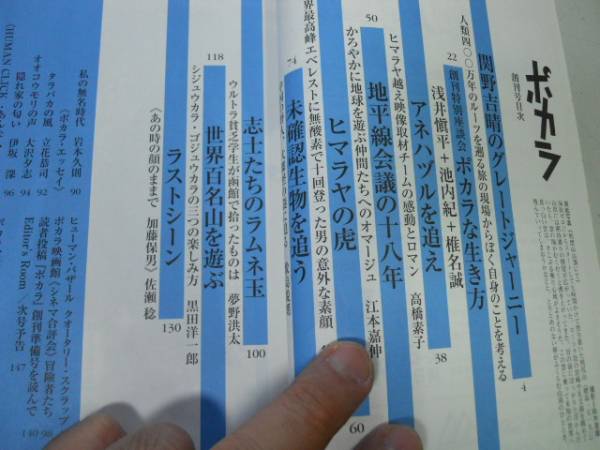 ポカラ
創刊号目次
関野吉晴のグレートジャーニー
人類四〇〇万年のルーツを遡る旅の現場からぼく自身のことを考える
4
創刊特別座談会 ポカラな生き方
浅井愼平+池内紀+椎名誠
22
アネハヅルを追え
ヒマラヤ越え映像取材チームの感動とロマン 高橋素子
38
地平線会議の十八年
かろやかに地球を遊ぶ仲間たちへのオマージュ 江本嘉伸
50
ヒマラヤの虎
界最高峰エベレストに無酸素で十回登った男の意外な素顔
60
未確認生物を追う
74
志士たちのラムネ玉
ウルトラ貧乏学生が函館で拾ったものは 夢野洪太
100
世界百名山を遊ぶ
シジュウカラ・ゴジュウカラの三つの楽しみ方 黒田洋一郎
118
ラストシーン
〈あの時の顔のままで 加藤保男〉 佐瀬 稔
130
私の無名時代 岩木久則 90
〈ポカラ・エッセイ〉
タラバカの風 立花恭司 92
オオコウモリの声 大沢夕志 94
隠れ家の匂い 伊坂 深 96
〈HUMAN CLICK
ヒューマン・バザール クオータリー・スクラップ
ポカラ映画館〈シネマ合評会〉冒険者たち
読者投稿『ポカラ』創刊準備号を読んで
Editor's Room/次号予告
147
140
98